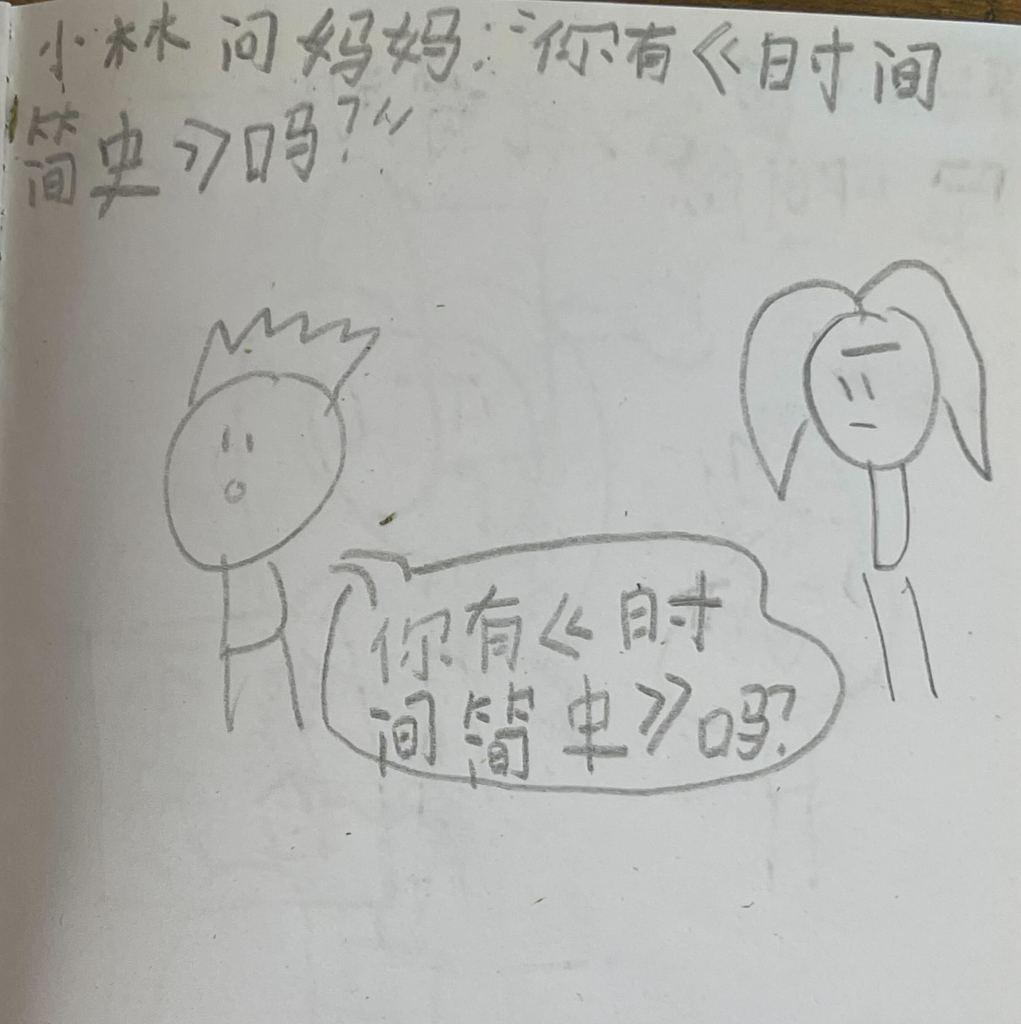 小林问妈妈:“你有《时间
简史》吗?”
你有《时
间简史》吗?